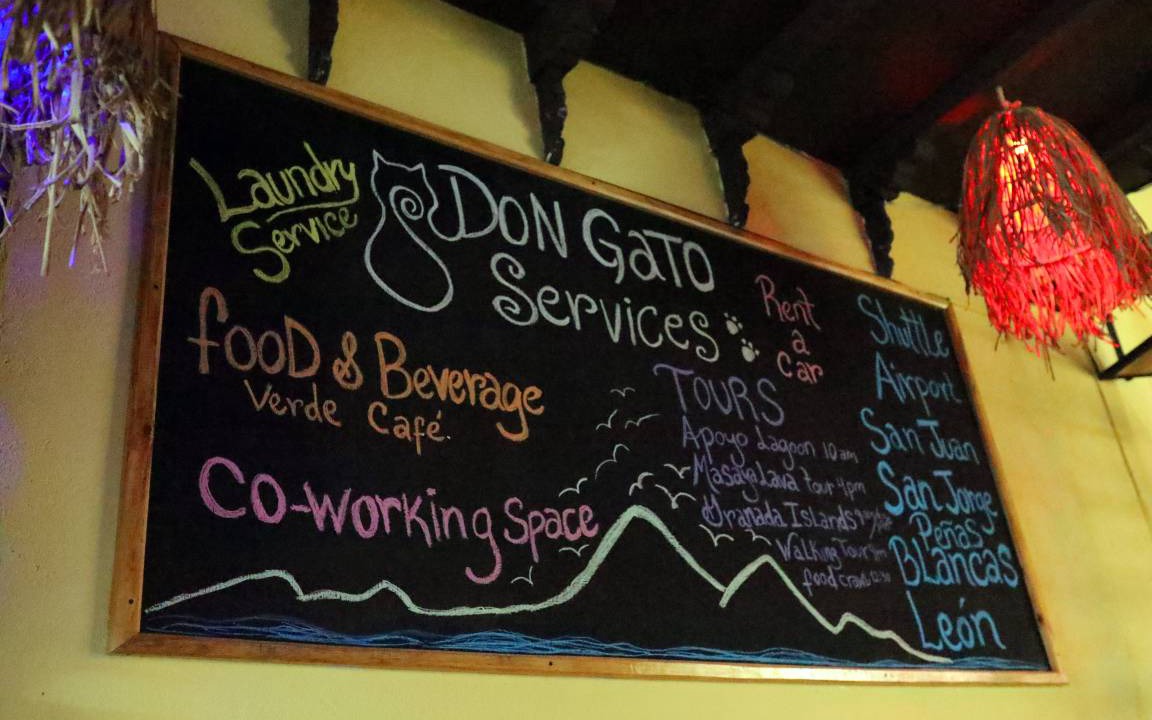 Laundry
Service
DON GATO
Services
Rent
a
car
Food & Beverage
Verde Café.
CO-WORKING Space
TOURS
Apoyo Lagoon 10 am
Masaya Lava tour 4pm
Granada Islands
Walking Tour
food crawl
Shuttle
Airport
San Juan
San Jorge
Peñas
BLancas
León